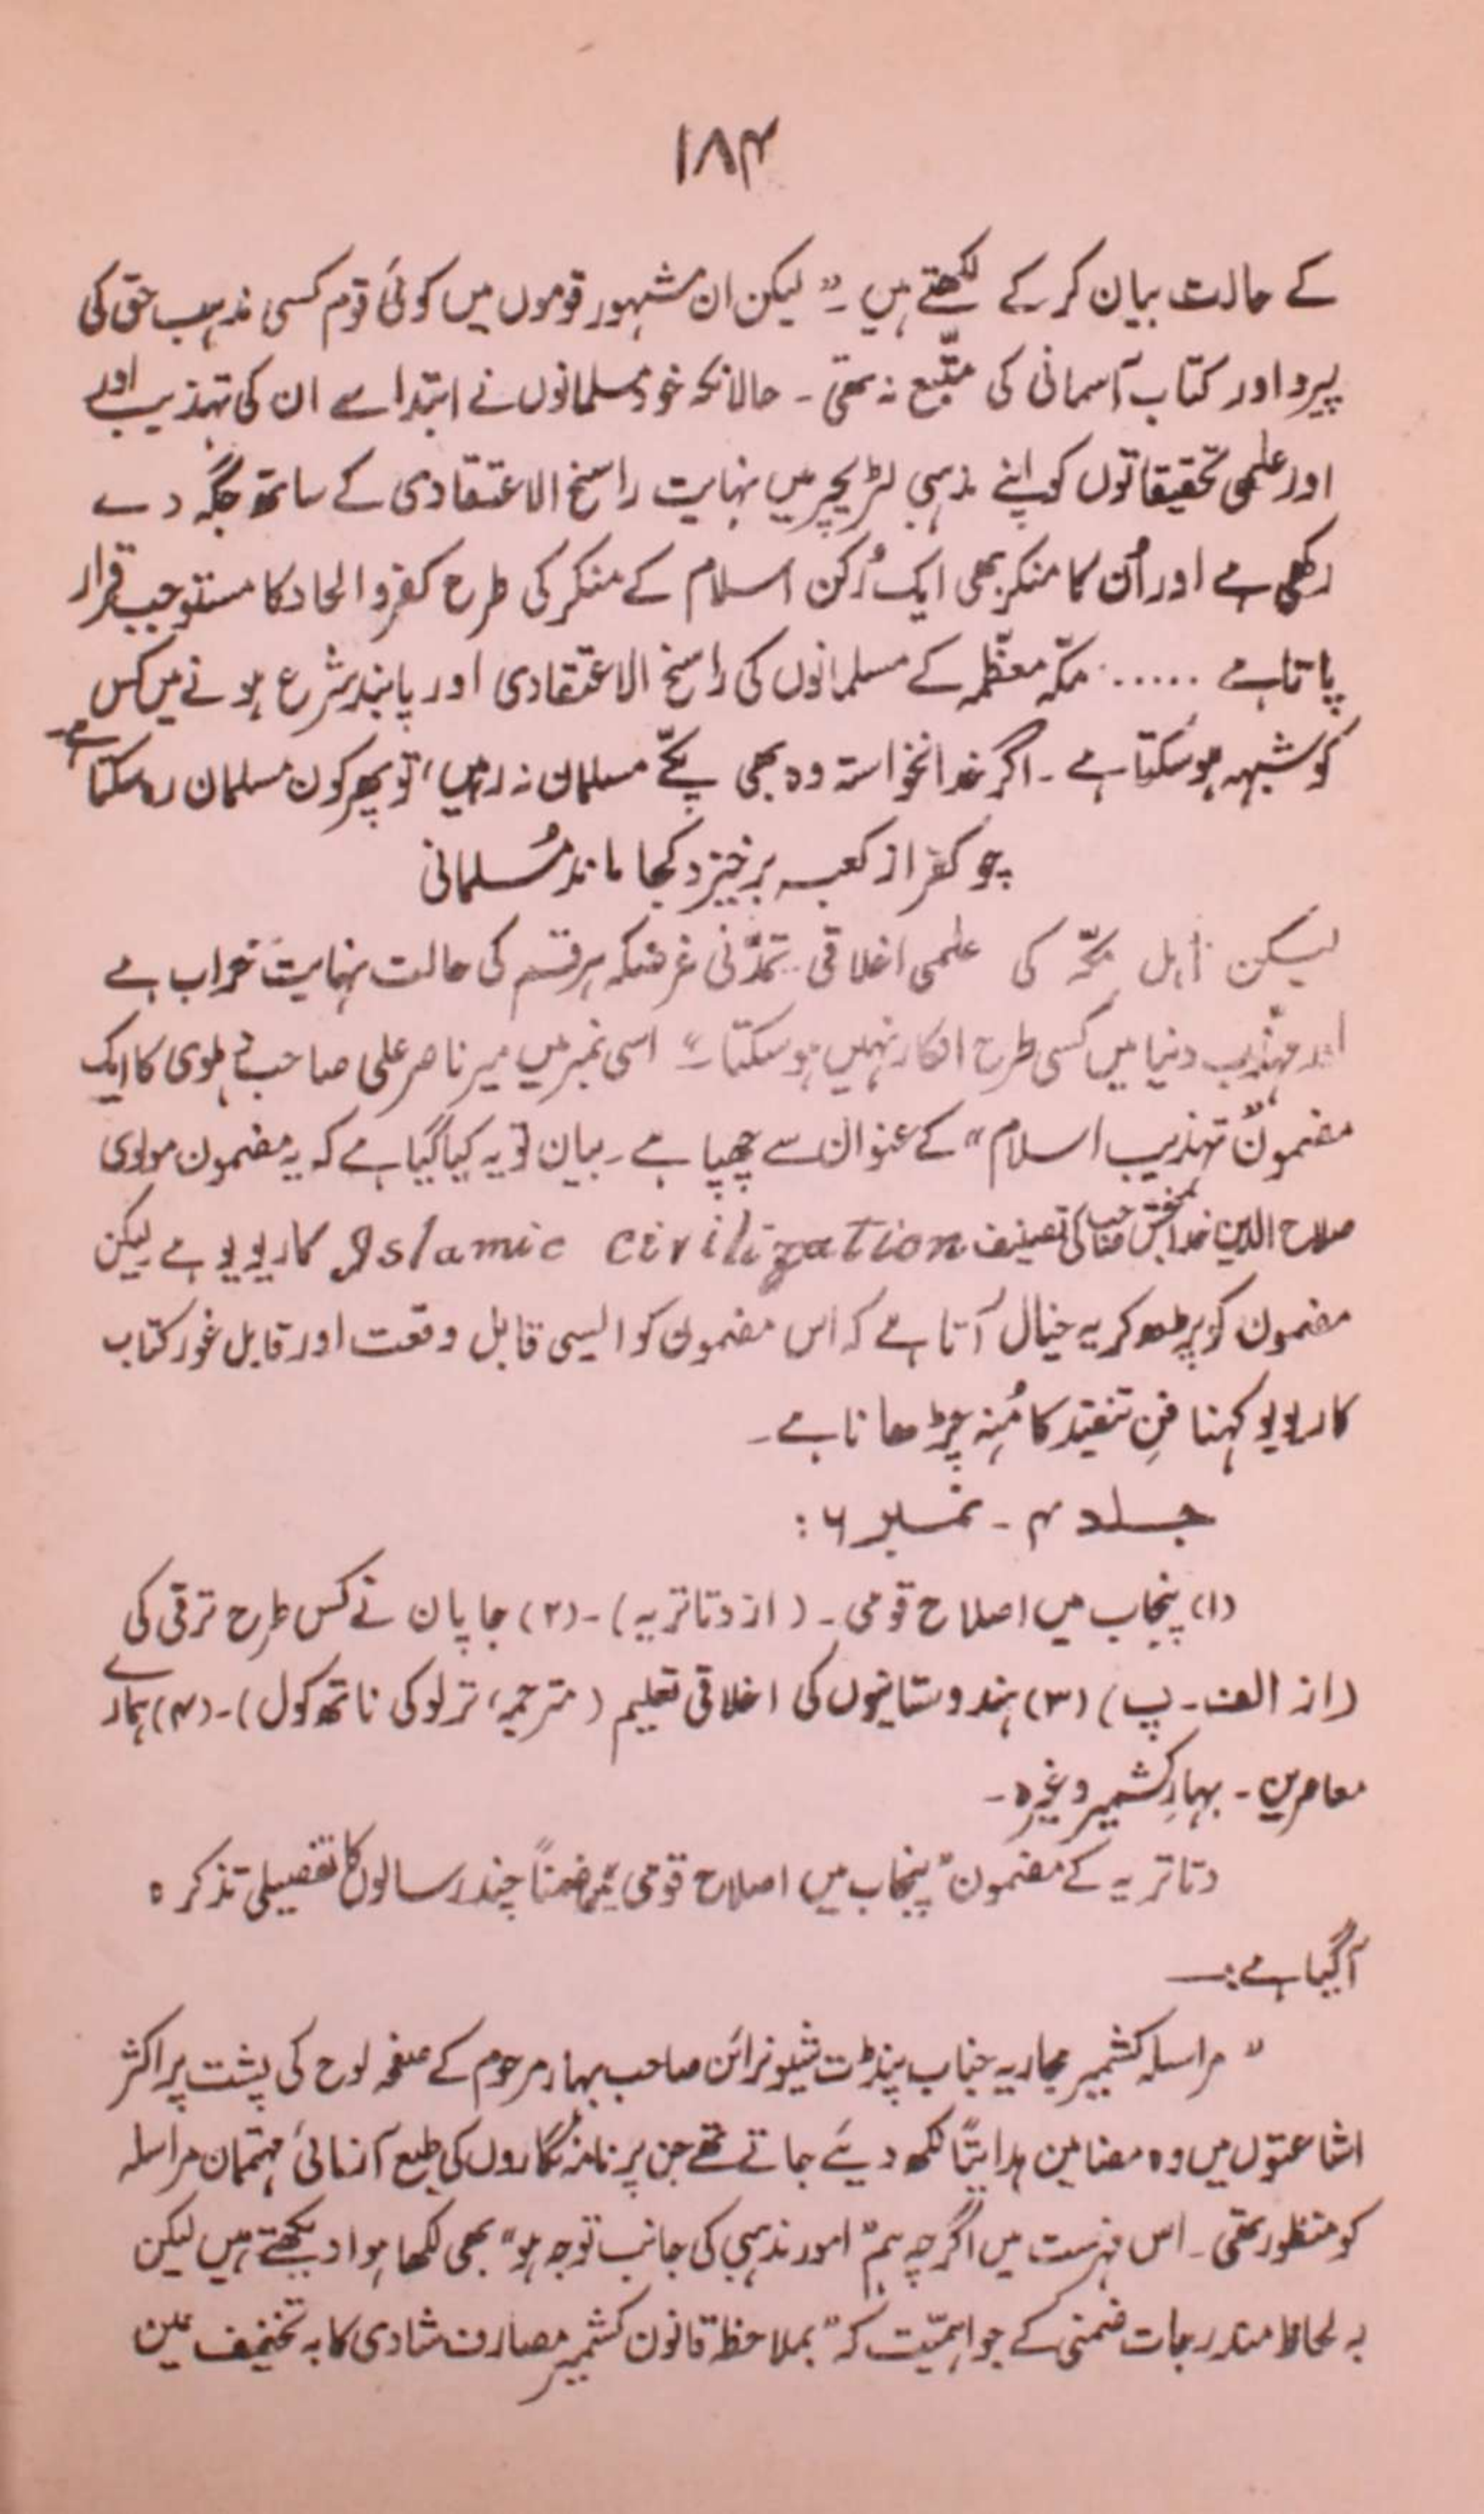 ۱۸۴
کے حالات بیان کر کے لکھتے ہیں۔ "لیکن ان مشہور قوموں میں کوئی قوم کسی مذہب حق کی
پیرو اور کتاب آسمانی کی متّبع نہ تھی۔ حالانکہ خود مسلمانوں نے ابتدا سے ان کی تہذیب اور
اور علمی تحقیقاتوں کو اپنے مذہبی لٹریچر میں نہایت راسخ الاعتقادی کے ساتھ جگہ دے
رکھی ہے اور اُن کا منکر بھی ایک رُکن اسلام کے منکر کی طرح کفر و الحاد کا مستوجب قرار
پاتا ہے ..... مکّہ معظّمہ کے مسلمانوں کی راسخ الاعتقادی اور پابند شرع ہونے میں کس
کو شبہہ ہو سکتا ہے۔ اگر خدانخواستہ وہ بھی پکّے مسلمان نہ رہیں، تو پھر کون مسلمان رہ سکتا ہے۔
چو کفر از کعبہ برخیزد کجا ماند مُسلمانی
لیکن اہل مکّہ کی علمی اخلاقی تمدّنی غرضکہ ہر قسم کی حالت نہایت خراب ہے
اور مہذّب دنیا میں کسی طرح انکار نہیں ہو سکتا۔" اسی نمبر میں میر ناصر علی صاحب دہلوی کا ایک
مضمون "تہذیب اسلام" کے عنوان سے چھپا ہے۔ بیان تو یہ کیا گیا ہے کہ یہ مضمون مولوی
صلاح الدین خدا بخش صاحب کی تصنیف Islamic civilization کا ریویو ہے لیکن
مضمون کو پڑھ کر یہ خیال آتا ہے کہ اس مضمون کو ایسی قابل وقعت اور قابل غور کتاب
کا ریویو کہنا فنِ تنقید کا مُنہ چڑھانا ہے۔
جلد ۴۔ نمبر ۶:
(۱) پنجاب میں اصلاح قومی۔ (از دتاتریہ)۔ (۲) جاپان نے کس طرح ترقی کی
(از الف۔ پ) (۳) ہندوستانیوں کی اخلاقی تعلیم (مترجمہ، ترلوکی ناتھ کول)۔ (۴) ہمارے
معاصرین۔ بہارِ کشمیر وغیرہ۔
دتاتریہ کے مضمون "پنجاب میں اصلاح قومی" میں ضمناً چند رسالوں کا تفصیلی تذکرہ
آگیا ہے:—
" مراسلہ کشمیر مجاریہ جناب پنڈت شیونرائن صاحب بہار مرحوم کے صفحہ لوح کی پشت پر اکثر
اشاعتوں میں وہ مضامین ہدایتاً لکھ دیئے جاتے تھے جن پر نامہ نگاروں کی طبع آزمائی مہتمان مراسلہ
کو منظور تھی۔ اس فہرست میں اگرچہ ہم "امور مذہبی کی جانب توجہ ہو" بھی لکھا ہوا دیکھتے ہیں لیکن
بہ لحاظ مندرجات ضمنی کے جو اہمیّت کہ "بملاحظہ قانون کشمیر مصارف شادی کا بہ تخفیف